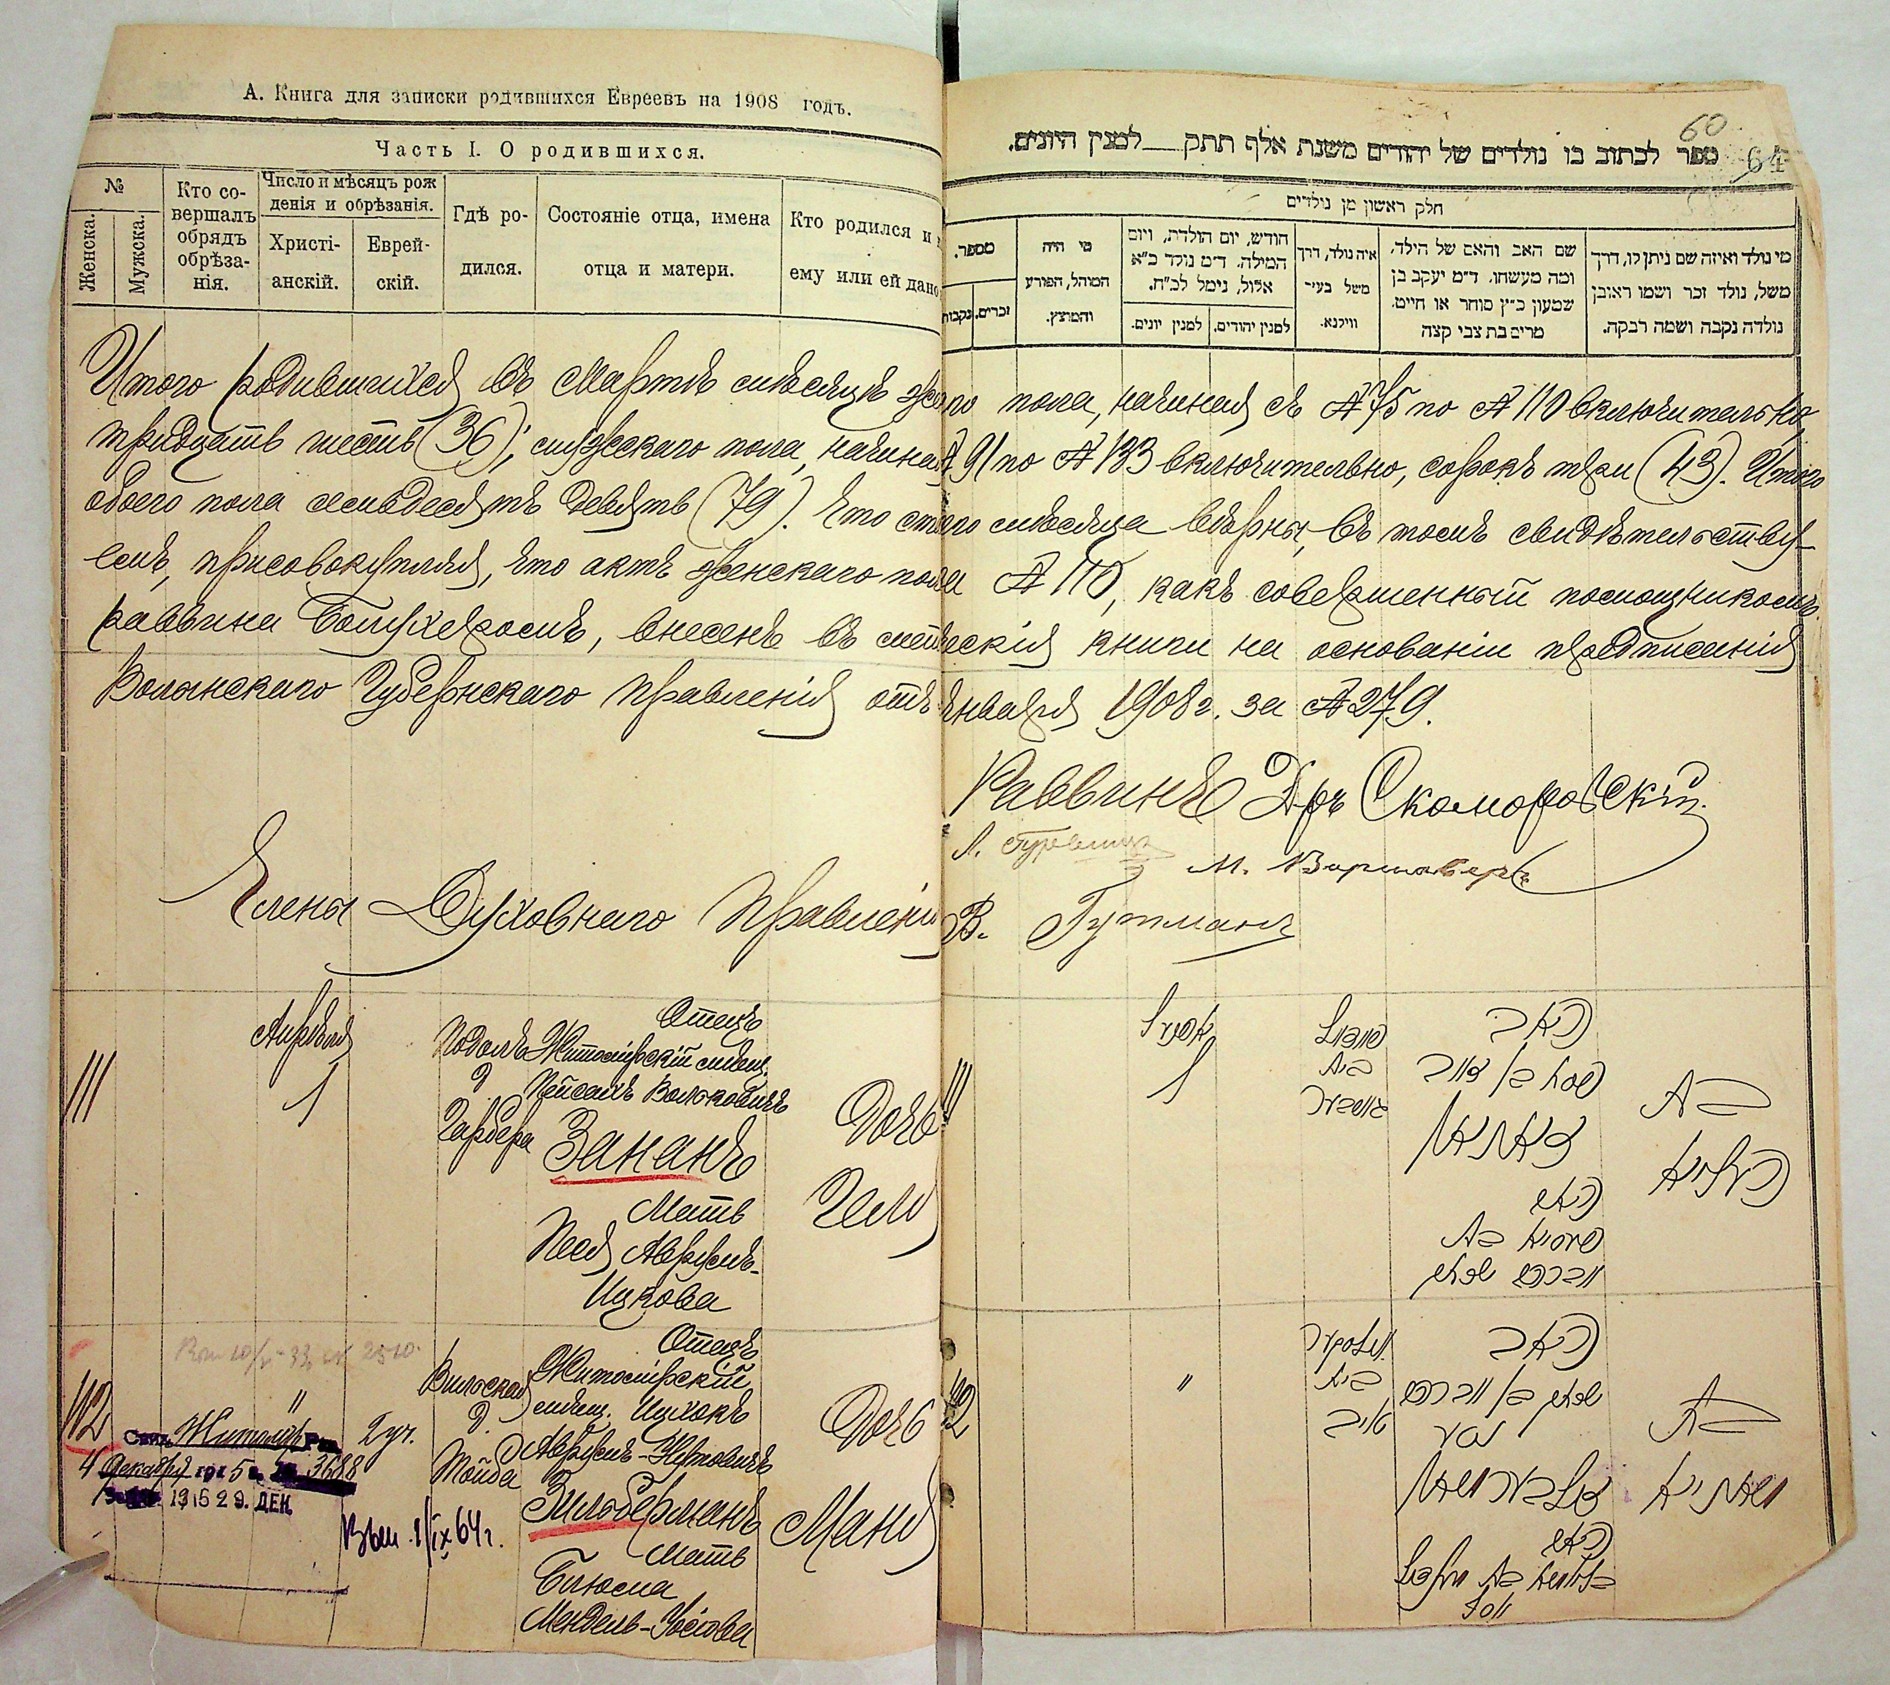 А. Книга для записки родившихся Евреевъ на 1908 годъ.
Часть I. О родившихся.
№
Женска.
Мужска.
Кто со-
вершалъ
обрядъ
обрѣза-
нія.
Число и мѣсяцъ рож
денія и обрѣзанія.
Христі-
анскій.
Еврей-
скій.
Гдѣ ро-
дился.
Состояніе отца, имена
отца и матери.
Кто родился и
ему или ей дано
60
64
ספר לכתוב בו נולדים של יהודים משנת אלף תתק לסנין היונים.
חלק ראשון מן נולדים
מספר.
זכרים.
נקבות
מי היה
המוהל, הפורע
והמוצץ.
חודש, יום הולדת, ויום
המילה. ד״מ נולד כ״א
אלול, נימל לכ״ח.
למנין יונים.
למנין יהודים.
איה נולד, דרך
משל בעיר
ווילנא.
שם האב והאם של הילד.
ומה מעשהו. ד״מ יעקב בן
שמעון כ״ץ סוחר או חייט.
מרים בת צבי קצה
מי נולד ואיזה שם ניתן לו, דרך
משל, נולד זכר ושמו ראובן
נולדה נקבה ושמה רבקה.
Итого родившихся въ Мартѣ мѣсяцѣ же го пола, начиная съ №75 по №110 включительно,
тридцать шесть (36); мужскаго пола, начиная № 91 по №133 включительно, сорокъ три (43). Итого
обоего пола семьдесятъ девять (79). Что сего мѣсяца вѣрны, въ томъ свидѣтельству-
емъ, присовокупляя, что актъ женскаго пола №110, какъ совершенный помощникомъ
раввина, внесенъ въ метрическія книги на основаніи предписанія
Волынскаго Губернскаго Правленія отъ января 1908 г. за №279.
Раввинъ Дръ Скоморовскій
Л. Гурвицъ
М. Варшаверъ
Члены Духовнаго Правленія В. Гутманъ
111
Апрѣля
1
Подолъ
д
Гарбера
Отецъ
Житомірскій мѣщ.
Пейсахъ Вольковичъ
Зананъ
Мать
Песя Аврумъ-
Ицкова
Дочь
Геля
111
אפריל
1
פאדאל
בית
גארבער
האב
פסח בן
זאנאן
האם
בת
אברהם יצחק
בת
העליא
112
"
2 уч.
Вильская
д
Тойба
Отецъ
Житомірскій
мѣщ. Ицхокъ
Аврумъ-
Зильберманъ
Мать
Блюма
Мендель-Іосіова
Дочь
Маня
Свид. Житомір Ра
4 декабря 192 5 г. № 3688
19 1529. ДЕН
Выд. 1/IX 64 г.
112
"
ווילסקער
בית
טויב
האב
יצחק בן אברהם
זילבערמאן
האם
בלומא בת מענדעל
יוסף
בת
מאניא